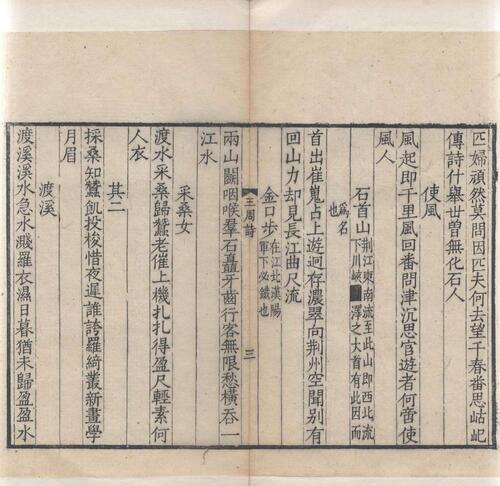 匹婦頑然莫問因匹夫何去望千春番思岵屺
傳詩什舉世曾無化石人
使風
風起即千里風回番問津沉思宦遊者何啻使
風人
石首山
荆江東南流至此山即西北流
下川峽澤之大首有此因而
爲名
也
首出崔嵬占上遊迥存濃翠向荆州空聞别有
回山力却見長江曲尺流
金口步
在江北漢陽
軍下必鐵也
王周詩
三
兩山鬭咽喉羣石矗牙齒行客無限愁橫吞一
江水
采桑女
渡水采桑歸蠶老催上機扎扎得盈尺輕素何
人衣
其二
採桑知蠶飢投梭惜夜遲誰誇羅綺叢新畫學
月眉
渡溪
渡溪溪水急水濺羅衣濕日暮猶未歸盈盈水